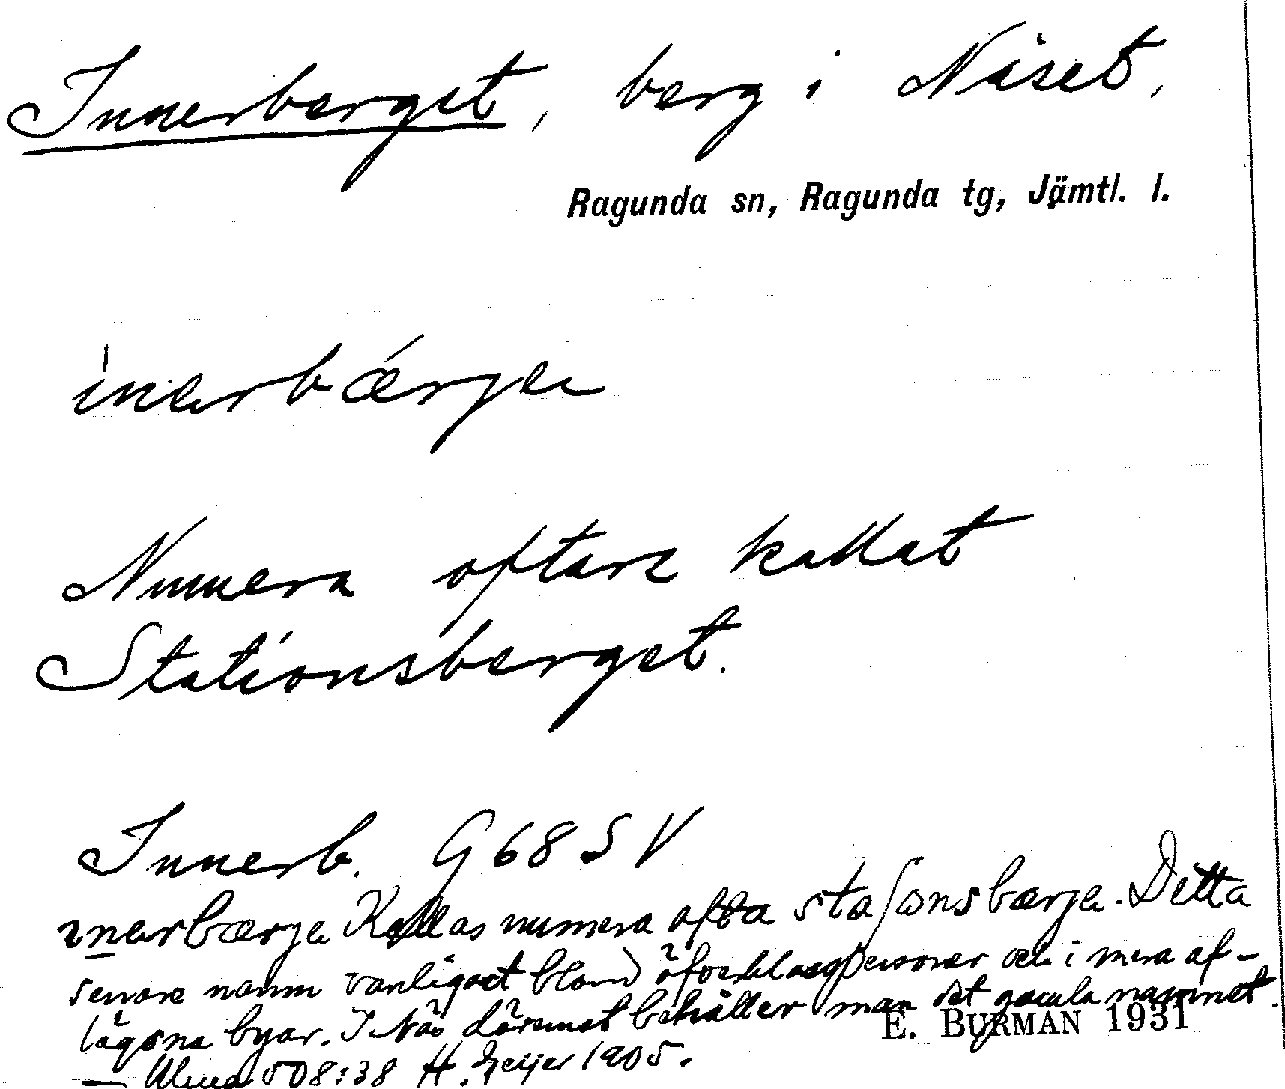 Innerberget, berg i Näset,
Ragunda sn, Ragunda tg, Jämtl. l.
inerbærje
Numera oftare kallat
Stationsberget.
Innerb. G 68 S V
ınerbærje Kallas numera ofta staʃonsbærje. Detta
senare namn vanligast bland personer och i mera af-
lägsna byar. I Näs däremot behåller man det gamla namnet.
E. BURMAN 1931
— 508:38 H. Geijer 1905.